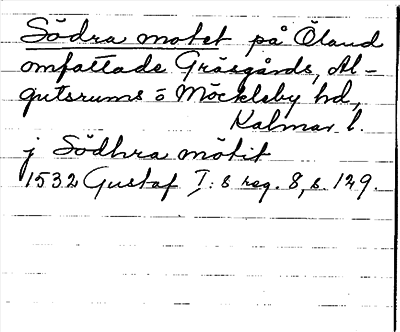 Södra motet på Öland
omfattade Gräsgårds, Al-
gutsrums o Möckleby hd,
Kalmar l.
j Södhra mötit
1532 Gustaf I:s reg. 8, s. 129.